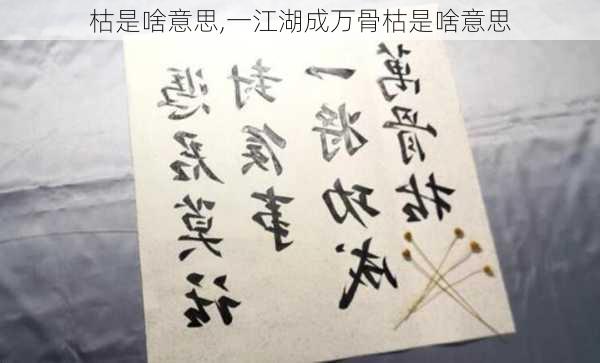 枯是啥意思,一江湖成万骨枯是啥意思
憑君莫话
封侯事
一将功成
萬骨枯